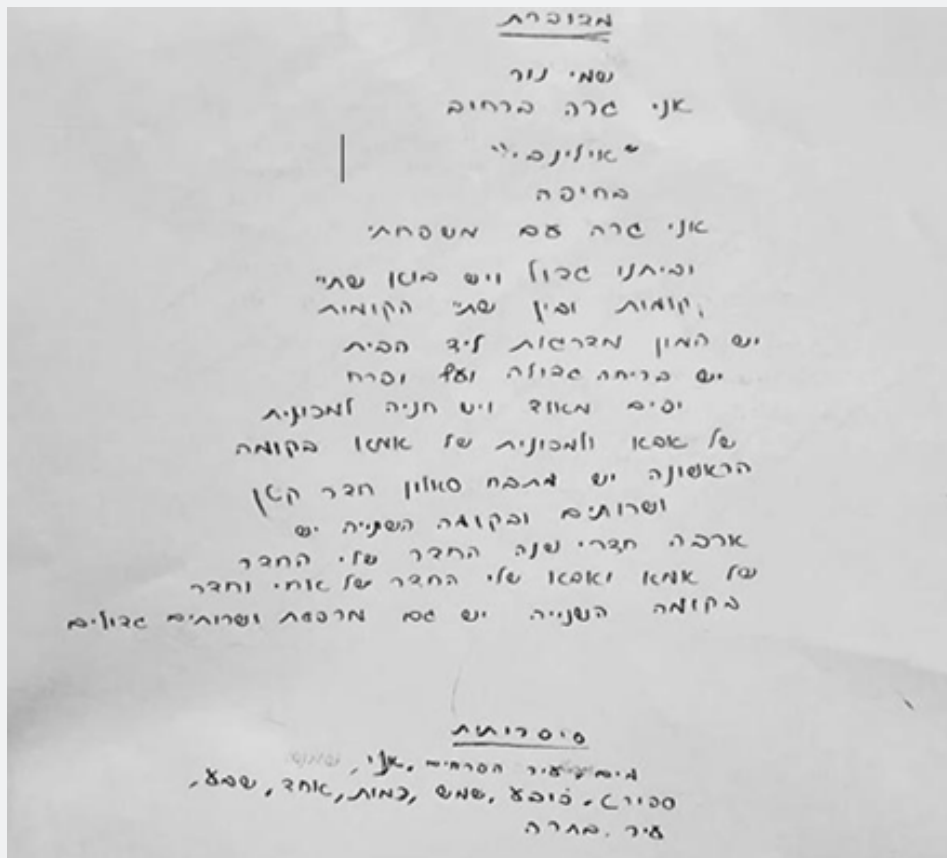 מחוברת
שמי נור
אני גרה ברחוב
"אילינבי"
בחיפה
אני גרה עם משפחתי
וביתנו גדול ויש בו שתי
קומות ובין שתי הקומות
יש המון מדרגות ליד הבית
יש בריחה גדולה ועץ ופרח
יפים מאוד ויש חניה למכונית
של אבא ולמכונית של אמא בקומה
הראשונה יש מתבח סאלון חדר קטן
ושרותים ובקומה השנייה יש
ארבה חדרי שנה החדר שלי החדר
של אמא ואבא שלי החדר של אחי וחדר
בקומה השנייה יש גם מרפסת ושרותים גדולים
מים, עיר הפרחים, אני,
ספירט, כובע, שמש, כמות, אחד, שבע,
עיר, בחרה